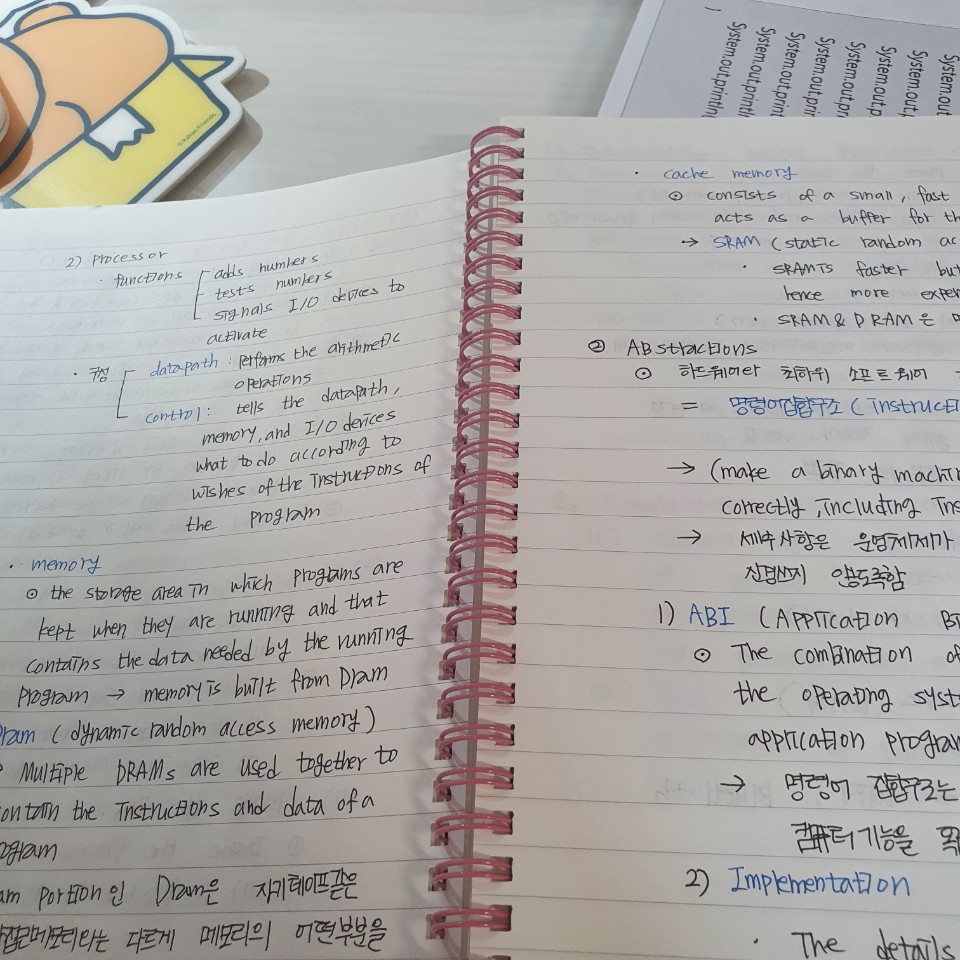 System.out.println
System.out.println
System.out.prin
System.out.prin
System.out.prin
System.out.p
System.out.p
System.out.
System.out
2) processor
· functions
adds numbers
tests numbers
signals I/O devices to
activate
· 구성
datapath : performs the arithmetic
operations
control : tells the datapath,
memory, and I/O devices
what to do according to
wishes of the instructions of
the program
· memory
⊙ the storage area in which programs are
kept when they are running and that
contains the data needed by the running
program → memory is built from Dram
ram ( dynamic random access memory )
Multiple DRAMs are used together to
ontain the instructions and data of a
ogram
am portion인 Dram은 자기테이프같은
다르게 메모리의 어떤부분을
· cache memory
⊙ consists of a small, fast
acts as a buffer for th
→ SRAM ( static random ac
· SRAM is faster but
hence more expen
· SRAM & DRAM은
② Abstractions
⊙ 하드웨어와 최하위 소프트웨어
= 명령어집합구조 ( instruct
→ (make a binary machin
correctly, including ins
→ 세부사항은 운영체제가
신경쓰지 않도록함
1) ABI ( Application Bi
⊙ The combination of
the operating syst
application program
→ 명령어 집합구조는
컴퓨터 기능을
2) Implementation
· The details